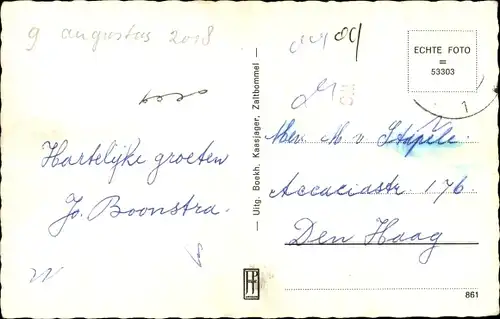 9 augustus 2018
Hartelijke groeten
Jo. Boonstra.
— Uitg. Boekh. Kaasjager, Zaltbommel —
ECHTE FOTO
=
53303
1
Mev. M v. Stapele.
Accaciastr. 176.
Den Haag
861